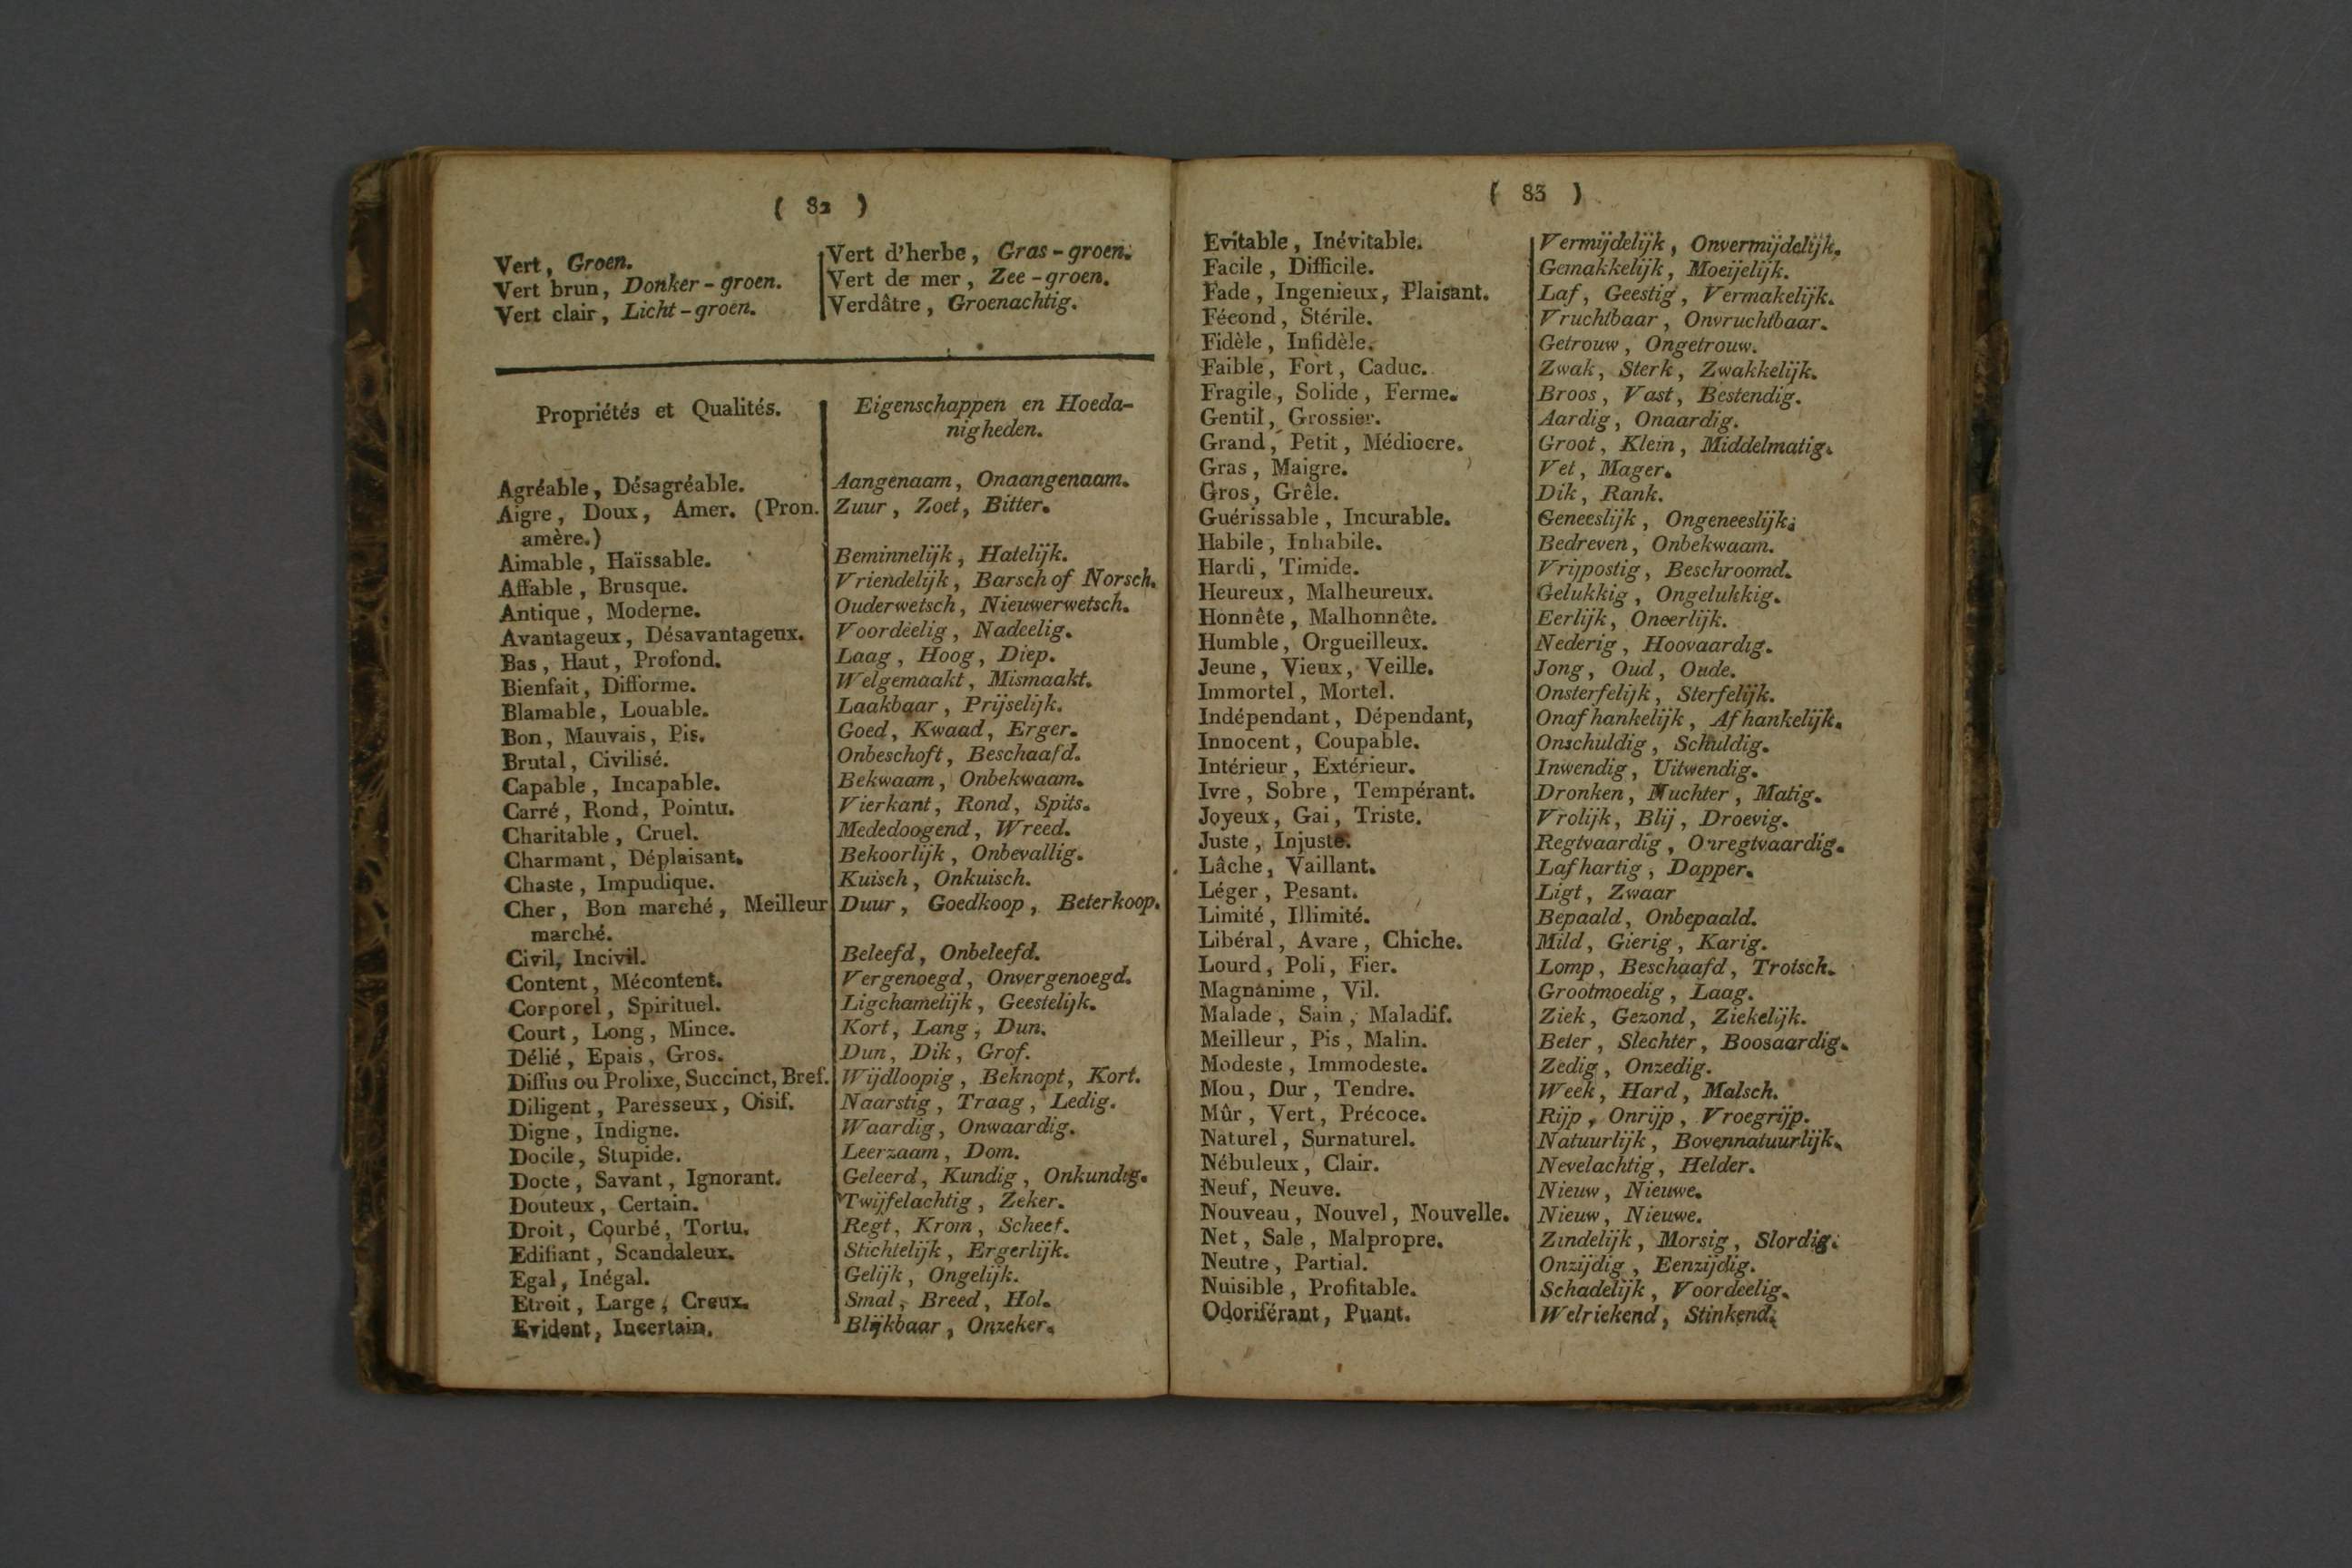 ( 82 )
Vert, Groen.
Vert brun, Donker-groen.
Vert clair, Licht-groen.
Vert d'herbe, Gras-groen.
Vert de mer, Zee-groen.
Verdâtre, Groenachtig.
Propriétés et Qualités.
Eigenschappen en Hoeda-
nigheden.
Agréable, Désagréable.
Aangenaam, Onaangenaam.
Aigre, Doux, Amer. (Pron.
amère.)
Zuur, Zoet, Bitter.
Aimable, Haïssable.
Beminnelijk, Hatelijk.
Affable, Brusque.
Vriendelijk, Barsch of Norsch.
Antique, Moderne.
Ouderwetsch, Nieuwerwetsch.
Avantageux, Désavantageux.
Voordeelig, Nadeelig.
Bas, Haut, Profond.
Laag, Hoog, Diep.
Bienfait, Difforme.
Welgemaakt, Mismaakt.
Blamable, Louable.
Laakbaar, Prijselijk.
Bon, Mauvais, Pis.
Goed, Kwaad, Erger.
Brutal, Civilisé.
Onbeschoft, Beschaafd.
Capable, Incapable.
Bekwaam, Onbekwaam.
Carré, Rond, Pointu.
Vierkant, Rond, Spits.
Charitable, Cruel.
Mededoogend, Wreed.
Charmant, Déplaisant.
Bekoorlijk, Onbevallig.
Chaste, Impudique.
Kuisch, Onkuisch.
Cher, Bon marché, Meilleur
marché.
Duur, Goedkoop, Beterkoop.
Civil, Incivil.
Beleefd, Onbeleefd.
Content, Mécontent.
Vergenoegd, Onvergenoegd.
Corporel, Spirituel.
Ligchamelijk, Geestelijk.
Court, Long, Mince.
Kort, Lang, Dun.
Délié, Epais, Gros.
Dun, Dik, Grof.
Diffus ou Prolixe, Succinct, Bref.
Wijdloopig, Beknopt, Kort.
Diligent, Paresseux, Oisif.
Naarstig, Traag, Ledig.
Digne, Indigne.
Waardig, Onwaardig.
Docile, Stupide.
Leerzaam, Dom.
Docte, Savant, Ignorant.
Geleerd, Kundig, Onkundig.
Douteux, Certain.
Twijfelachtig, Zeker.
Droit, Courbé, Tortu.
Regt, Krom, Scheef.
Edifiant, Scandaleux.
Stichtelijk, Ergerlijk.
Egal, Inégal.
Gelijk, Ongelijk.
Etroit, Large, Creux.
Smal, Breed, Hol.
Evident, Incertain.
Blijkbaar, Onzeker.
( 83 )
Evitable, Inévitable.
Vermijdelijk, Onvermijdelijk.
Facile, Difficile.
Gemakkelijk, Moeijelijk.
Fade, Ingenieux, Plaisant.
Laf, Geestig, Vermakelijk.
Fécond, Stérile.
Vruchtbaar, Onvruchtbaar.
Fidèle, Infidèle.
Getrouw, Ongetrouw.
Faible, Fort, Caduc.
Zwak, Sterk, Zwakkelijk.
Fragile, Solide, Ferme.
Broos, Vast, Bestendig.
Gentil, Grossier.
Aardig, Onaardig.
Grand, Petit, Médiocre.
Groot, Klein, Middelmatig.
Gras, Maigre.
Vet, Mager.
Gros, Grêle.
Dik, Rank.
Guérissable, Incurable.
Geneeslijk, Ongeneeslijk.
Habile, Inhabile.
Bedreven, Onbekwaam.
Hardi, Timide.
Vrijpostig, Beschroomd.
Heureux, Malheureux.
Gelukkig, Ongelukkig.
Honnête, Malhonnête.
Eerlijk, Oneerlijk.
Humble, Orgueilleux.
Nederig, Hoovaardig.
Jeune, Vieux, Veille.
Jong, Oud, Oude.
Immortel, Mortel.
Onsterfelijk, Sterfelijk.
Indépendant, Dépendant,
Onafhankelijk, Afhankelijk.
Innocent, Coupable.
Onschuldig, Schuldig.
Intérieur, Extérieur.
Inwendig, Uitwendig.
Ivre, Sobre, Tempérant.
Dronken, Nuchter, Matig.
Joyeux, Gai, Triste.
Vrolijk, Blij, Droevig.
Juste, Injuste.
Regtvaardig, Onregtvaardig.
Lâche, Vaillant.
Lafhartig, Dapper.
Léger, Pesant.
Ligt, Zwaar
Limité, Illimité.
Bepaald, Onbepaald.
Libéral, Avare, Chiche.
Mild, Gierig, Karig.
Lourd, Poli, Fier.
Lomp, Beschaafd, Trotsch.
Magnanime, Vil.
Grootmoedig, Laag.
Malade, Sain, Maladif.
Ziek, Gezond, Ziekelijk.
Meilleur, Pis, Malin.
Beter, Slechter, Boosaardig.
Modeste, Immodeste.
Zedig, Onzedig.
Mou, Dur, Tendre.
Week, Hard, Malsch.
Mûr, Vert, Précoce.
Rijp, Onrijp, Vroegrijp.
Naturel, Surnaturel.
Natuurlijk, Bovennatuurlijk.
Nébuleux, Clair.
Nevelachtig, Helder.
Neuf, Neuve.
Nieuw, Nieuwe.
Nouveau, Nouvel, Nouvelle.
Nieuw, Nieuwe.
Net, Sale, Malpropre.
Zindelijk, Morsig, Slordig.
Neutre, Partial.
Onzijdig, Eenzijdig.
Nuisible, Profitable.
Schadelijk, Voordeelig.
Odoriférant, Puant.
Welriekend, Stinkend.